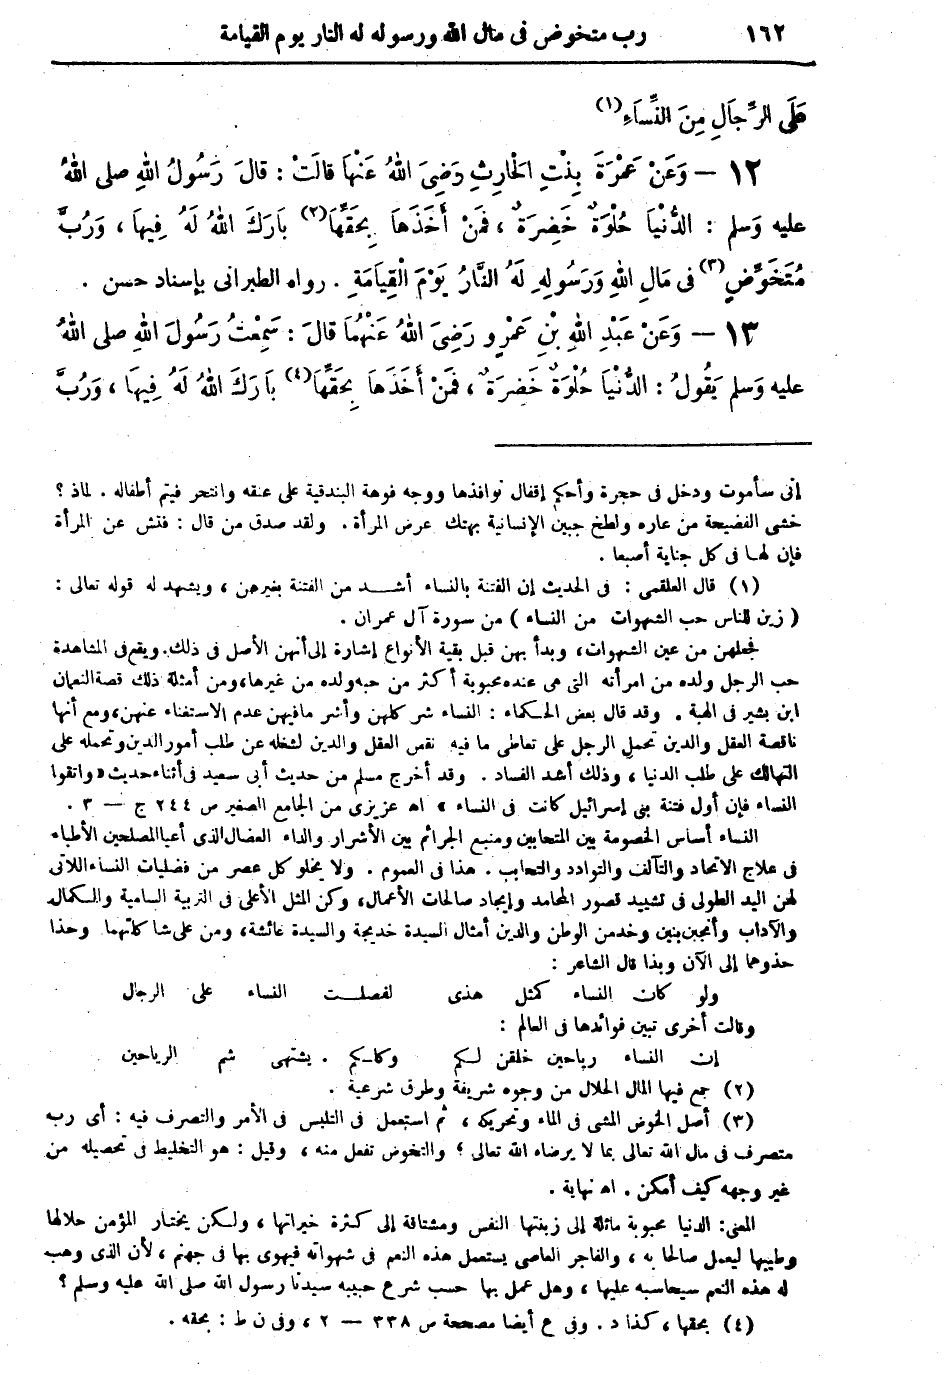 ١٦٢ رب متخوض فى مال الله ورسوله له النار يوم القيامة
عَلَى الرِّجَالِ مِنَ النِّسَاءِ(١)
١٢ – وَعَنْ عَمْرَةَ بِنْتِ الْحَارِثِ رَضِىَ اللهُ عَنْهَا قالَتْ : قالَ رَسُولُ اللهِ صلى اللهُ
عليه وَسلم : الدُّنْيَا حُلْوَةٌ خَضِرَةٌ ، فَمَنْ أَخَذَهَا بِحَقِّهَا(٢) بَارَكَ اللهُ لَهُ فِيهَا ، وَرُبَّ
مُتَخَوِّضٍ(٣) فى مَالِ اللهِ وَرَسُولِهِ لَهُ النَّارُ يَوْمَ الْقِيَامَةِ . رواه الطبرانى بإسناد حسن .
١٣ – وَعَنْ عَبْدِ اللهِ بْنِ عَمْرٍو رَضِىَ اللهُ عَنْهُمَا قالَ : سَمِعْتُ رَسُولَ اللهِ صلى اللهُ
عليه وَسلم يَقُولُ : الدُّنْيَا حُلْوَةٌ خَضِرَةٌ ، فَمَنْ أَخَذَهَا بِحَقِّهَا(٤) بَارَكَ اللهُ لَهُ فِيهَا ، وَرُبَّ
إنى سأموت ودخل فى حجرة وأحكم إقفال نوافذها ووجه فوهة البندقية على عنقه وانتحر فيتم أطفاله . لماذ ؟
خشى الفضيحة من عاره ولطخ جبين الإنسانية بهتك عرض المرأة . ولقد صدق من قال : فتش عن المرأة
فإن لها فى كل جناية أصبعا .
(١) قال العلقمى : فى الحديث إن الفتنة بالنساء أشد من الفتنة بغيرهن ، ويشهد له قوله تعالى :
( زين للناس حب الشهوات من النساء ) من سورة آل عمران .
فجعلهن من عين الشهوات، وبدأ بهن قبل بقية الأنواع إشارة إلى أنهن الأصل فى ذلك. ويقع فى المشاهدة
حب الرجل ولده من امرأته التى هى عنده محبوبة أكثر من حبه ولده من غيرها، ومن أمثلة ذلك قصة النعمان
ابن بشير فى الهبة . وقد قال بعض الحكماء : النساء شر كلهن وأشر مافيهن عدم الاستغناء عنهن، ومع أنها
ناقصة العقل والدين تحمل الرجل على تعاطى ما فيه نقص العقل والدين لشغله عن طلب أمور الدين وتحمله على
التهالك على طلب الدنيا ، وذلك أشد الفساد . وقد أخرج مسلم من حديث أبى سعيد فى أثناء حديث « واتقوا
النساء فإن أول فتنة بنى إسرائيل كانت فى النساء » اه عزيزى من الجامع الصغير ص ٢٤٤ ج – ٣ .
النساء أساس الخصومة بين المتحابين ومنبع الجرائم بين الأشرار والداء العضال الذى أعيا المصلحين الأطباء
فى علاج الاتحاد والتآلف والتوادد والتحابب . هذا فى العموم . ولا يخلو كل عصر من فضليات النساء اللاتى
لهن اليد الطولى فى تشييد قصور المحامد وإيجاد صالحات الأعمال، وكن المثل الأعلى فى التربية السامية والكمال
والآداب وأنجبن بنين وخدمن الوطن والدين أمثال السيدة خديجة والسيدة عائشة، ومن على شاكلتهما وحذا
حذوهما إلى الآن وبذا قال الشاعر :
ولو كان النساء كمثل هذى لفضلت النساء على الرجال
وقالت أخرى تبين فوائدها فى العالم :
إن النساء رياحين خلقن لكم وكلكم . يشتهى شم الرياحين
(٢) جمع فيها المال الحلال من وجوه شريفة وطرق شرعية .
(٣) أصل الخوض المشى فى الماء وتحريكه ، ثم استعمل فى التلبس فى الأمر والتصرف فيه : أى رب
متصرف فى مال الله تعالى بما لا يرضاه الله تعالى ؟ والتخوض تفعل منه ، وقيل : هو التخليط فى تحصيله من
غير وجهه كيف أمكن . اه نهاية .
المعنى: الدنيا محبوبة مائلة إلى زينتها النفس ومشتاقة إلى كثرة خيراتها ، ولكن يختار المؤمن حلالها
وطيبها ليعمل صالحا به ، والفاجر العاصى يستعمل هذه النعم فى شهواته فيهوى بها فى جهنم ، لأن الذى وهب
له هذه النعم سيحاسبه عليها ، وهل عمل بها حسب شرع حبيبه سيدنا رسول الله صلى الله عليه وسلم ؟
(٤) بحقها ، كذا د . وفى ع أيضا مصححة ص ٣٣٨ – ٢ ، وفى ن ط : بحقه .